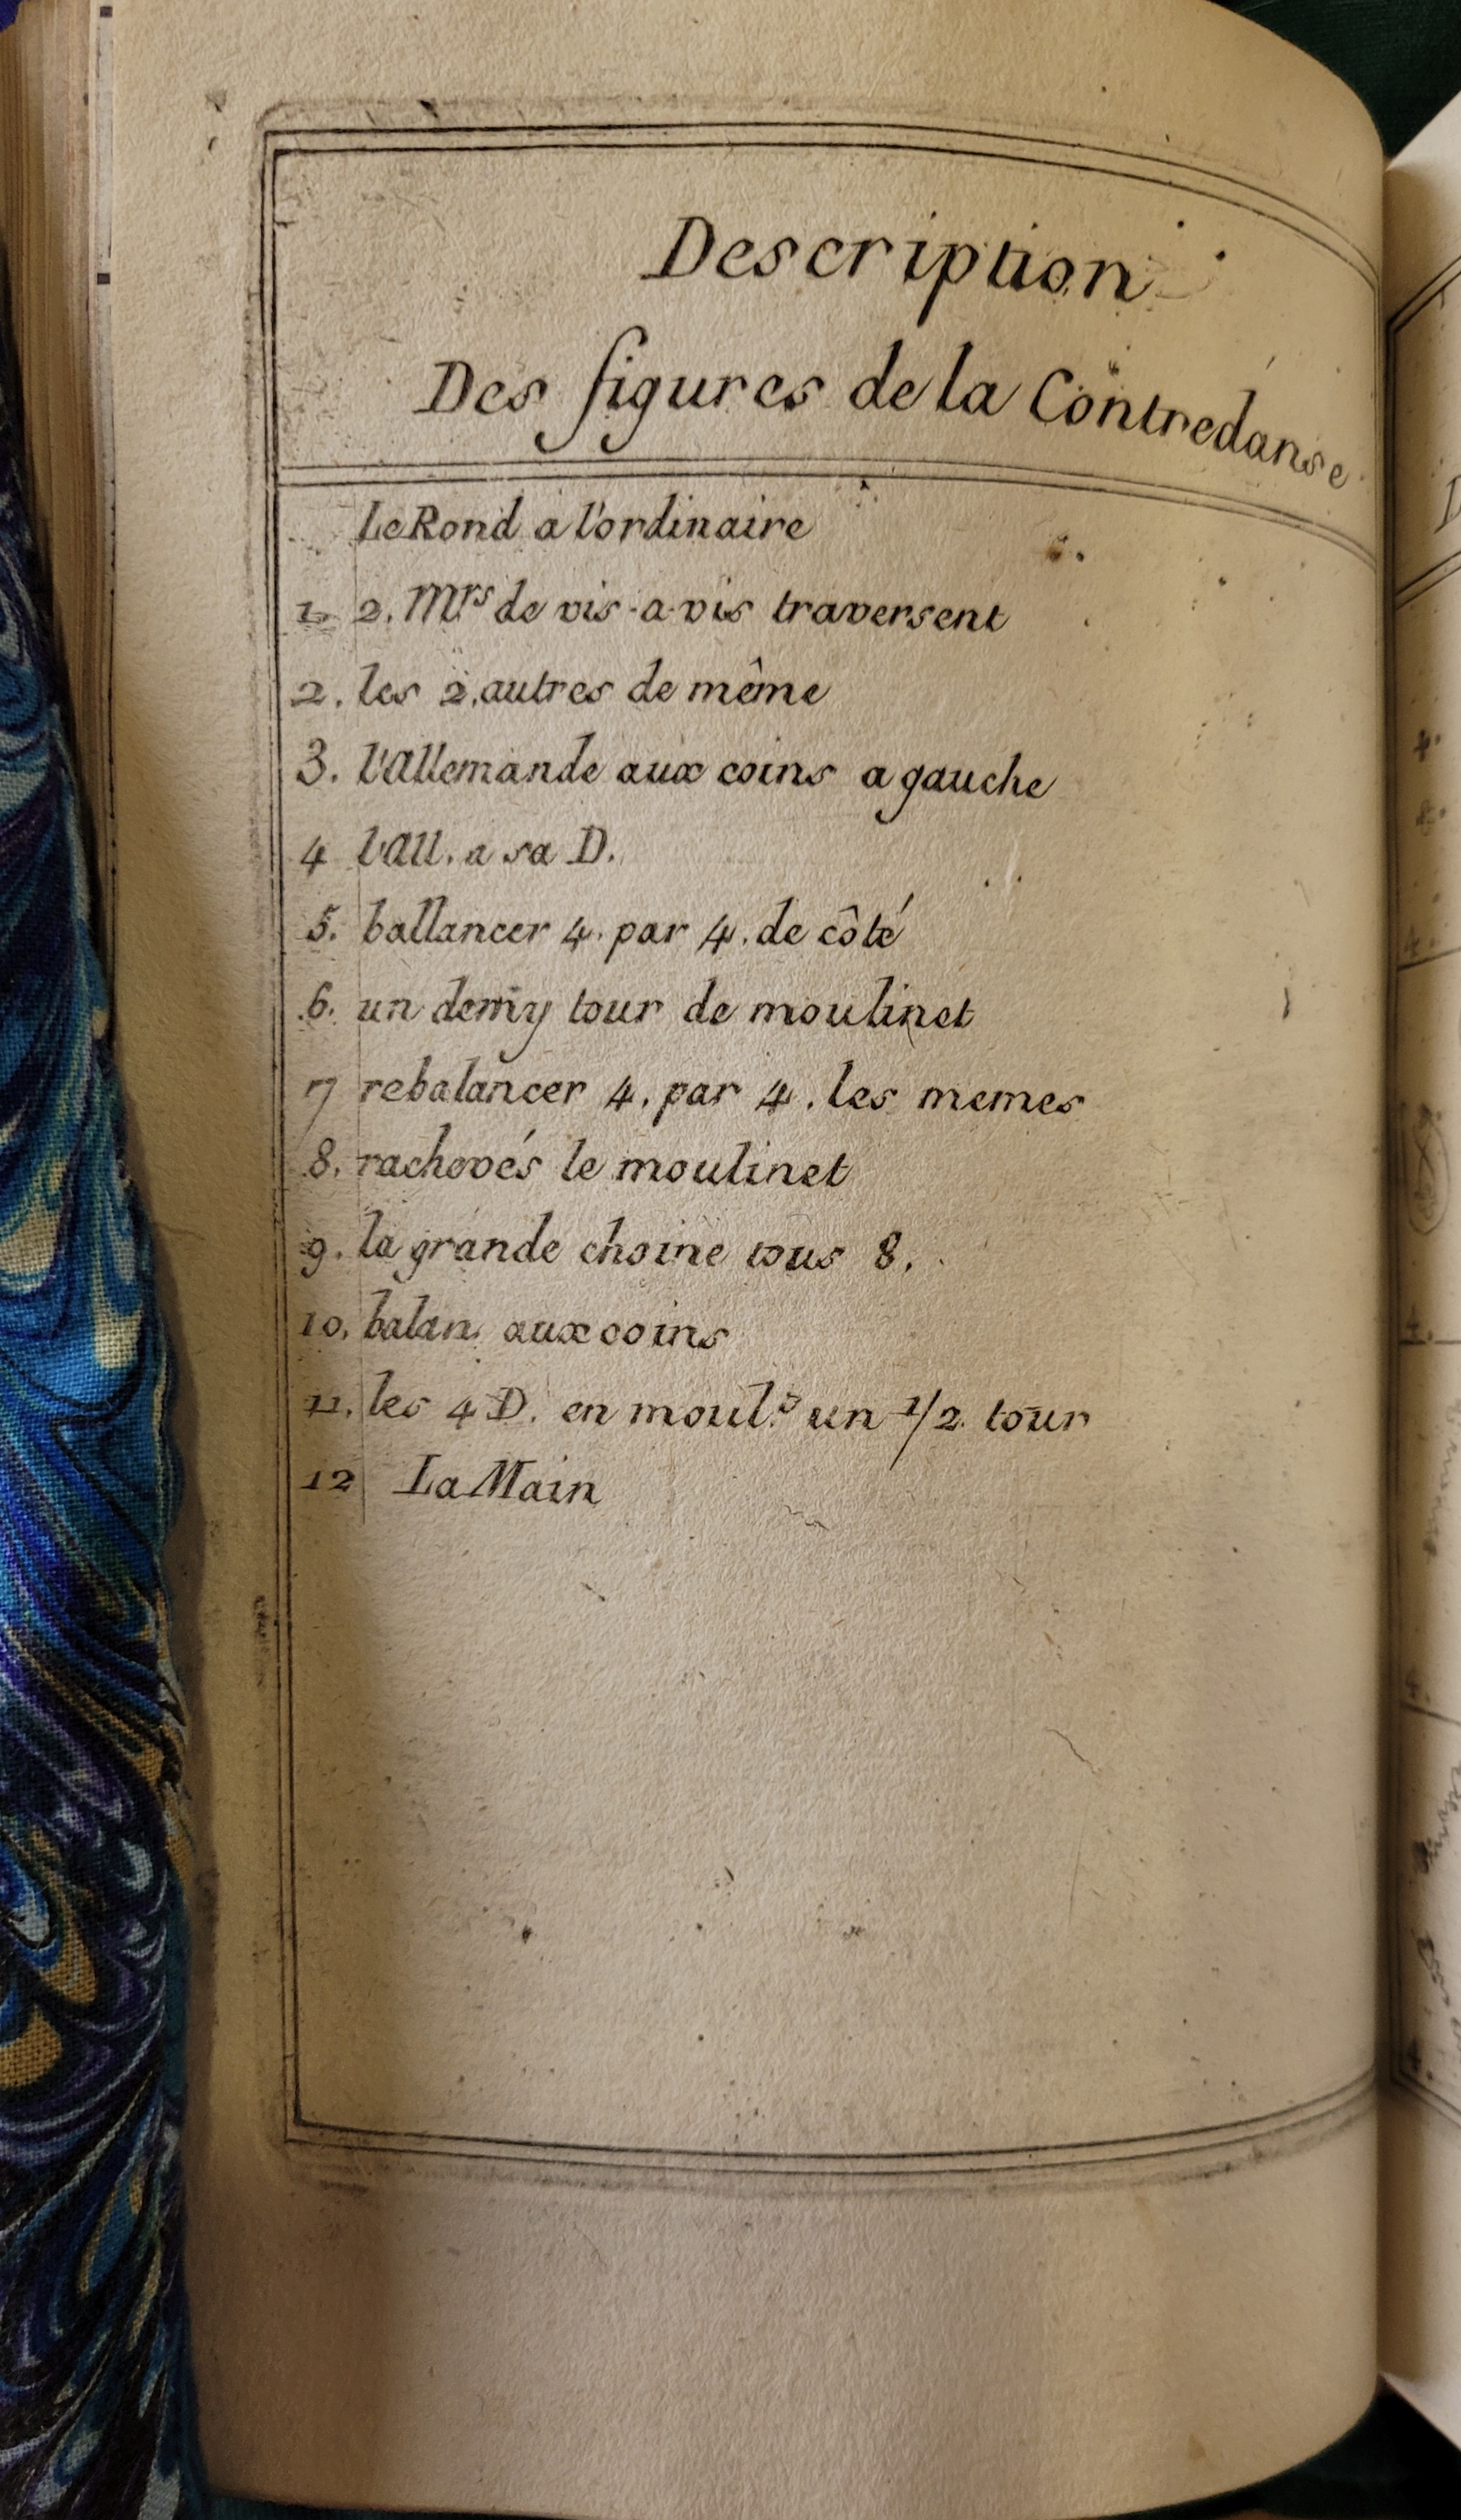 Description
Des figures de la Contredanse
Le Rond a l'ordinaire
1. 2. Mrs de vis-a-vis traversent
2. les 2. autres de même
3. l'Allemande aux coins a gauche
4 l'All. a sa D.
5. ballancer 4. par 4. de côté
6. un demy tour de moulinet
7 rebalancer 4. par 4. les memes
8. rachevés le moulinet
9. la grande chaine tous 8.
10. balan. aux coins
11. les 4 D. en moul. un 1/2 tour
12 La Main